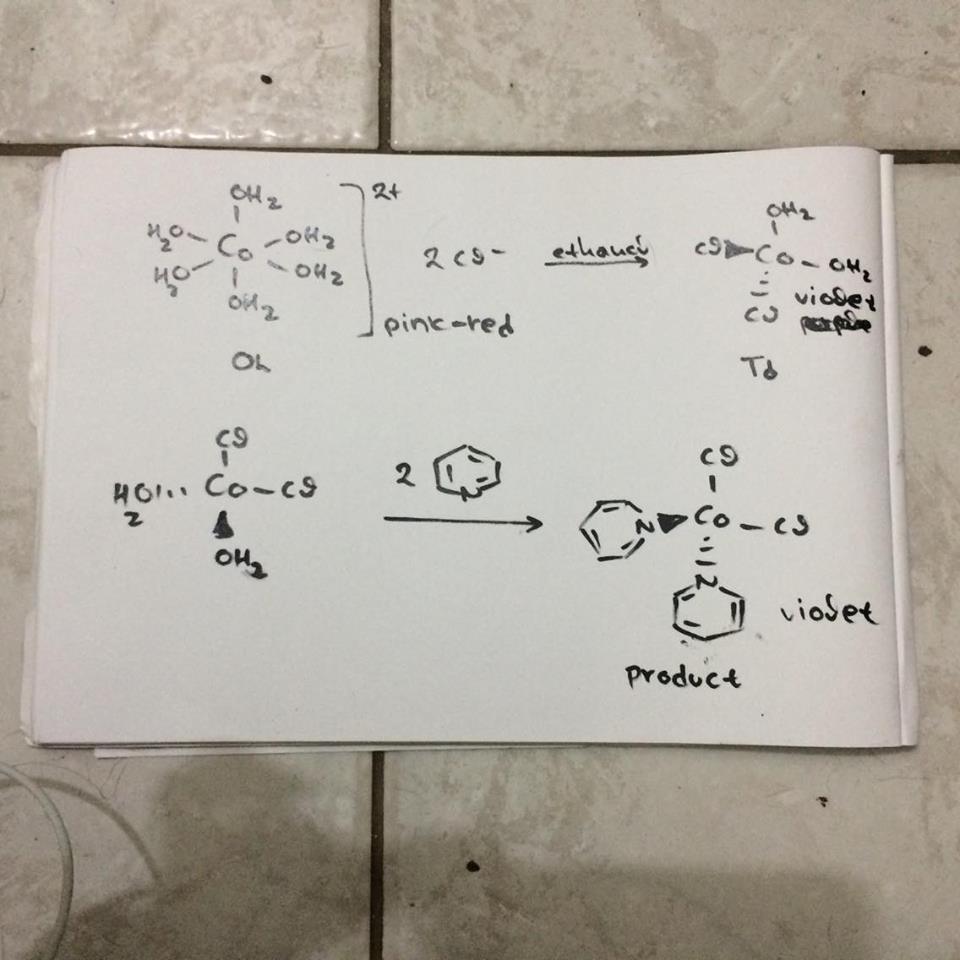 OH₂ ]²⁺
H₂O Co OH₂
H₂O OH₂
OH₂
pink-red
Oh
2 Cl⁻
ethanol
OH₂
Cl Co - OH₂
Cl
violet
Td
Cl
H₂O Co - Cl
OH₂
2 N
Cl
N Co - Cl
N
violet
product